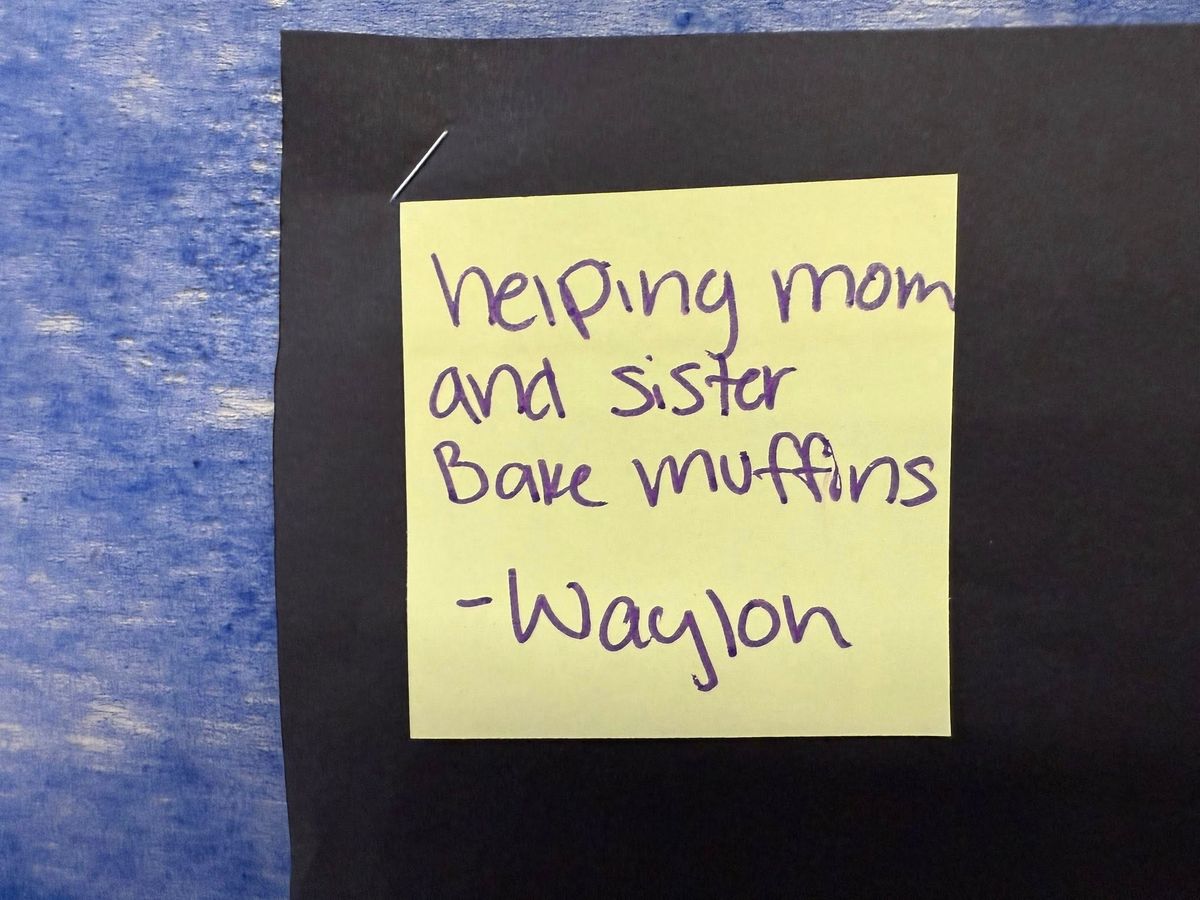 helping mom
and sister
Bake muffins
-Waylon